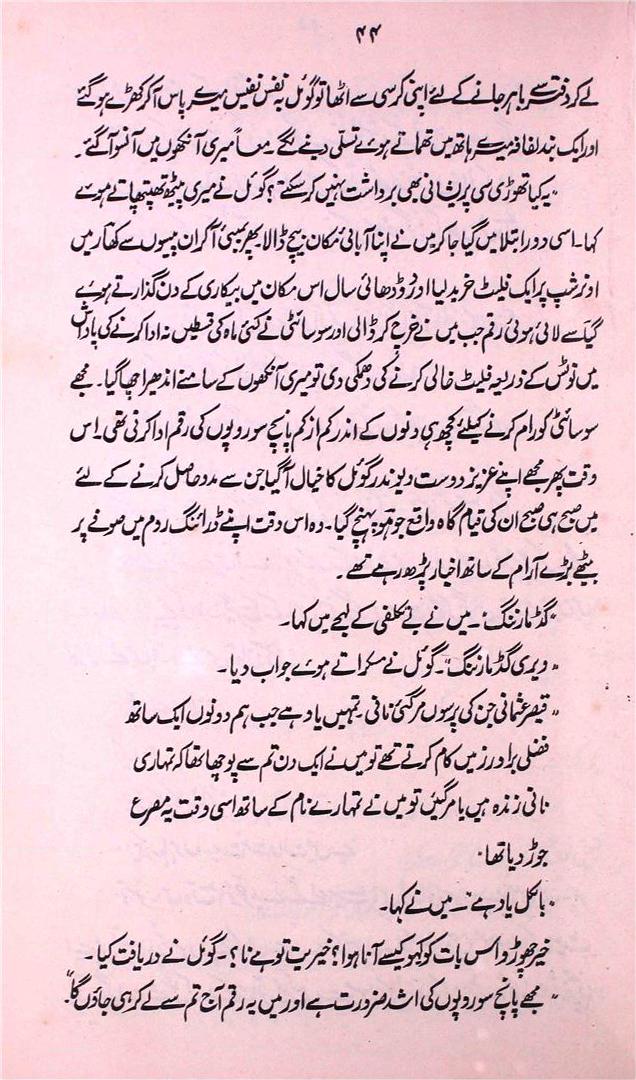 ۴۴
لے کر دفتر سے باہر جانے کے لئے اپنی کرسی سے اٹھا تو گوئل بہ نفس نفیس میرے پاس آ کر کھڑے ہو گئے
اور ایک بند لفافہ میرے ہاتھ میں تھماتے ہوئے تسلی دینے لگے۔ معاً میری آنکھوں میں آنسو آگئے۔
"یہ کیا تھوڑی سی پریشانی بھی برداشت نہیں کر سکتے؟ گوئل نے میری پیٹھ تھپتھپاتے ہوئے
کہا۔ اسی دور ابتلا میں گیا جا کر میں نے اپنا آبائی مکان بیچ ڈالا پھر بمبئی آ کر ان پیسوں سے کھار میں
اونرشپ پر ایک فلیٹ خرید لیا اور ڈو ڈھائی سال اس مکان میں بیکاری کے دن گذارتے ہوئے
گیا سے لائی ہوئی رقم جب میں نے خرچ کر ڈالی اور سوسائٹی نے کئی ماہ کی قسطیں نہ ادا کرنے کی پاداش
میں نوٹس کے ذریعہ فلیٹ خالی کرنے کی دھمکی دی تو میری آنکھوں کے سامنے اندھیرا چھا گیا۔ مجھے
سوسائٹی کو رام کرنے کیلئے کچھ ہی دنوں کے اندر کم از کم پانچ سو روپوں کی رقم ادا کرنی تھی۔ اس
وقت پھر مجھے اپنے عزیز دوست دیوندر گوئل کا خیال آگیا جن سے مدد حاصل کرنے کے لئے
میں صبح ہی صبح ان کی قیام گاہ واقع جوہو پہنچ گیا۔ وہ اس وقت اپنے ڈرائنگ روم میں صوفے پر
بیٹھے بڑے آرام کے ساتھ اخبار پڑھ رہے تھے۔
"گڈ مارننگ"۔ میں نے بے تکلفی کے لہجے میں کہا۔
"ویری گڈ مارننگ"۔ گوئل نے مسکراتے ہوئے جواب دیا۔
"قیصر عثمانی جن کی پرسوں مر گئی نانی۔ تمہیں یاد ہے جب ہم دونوں ایک ساتھ
فضلی برادرز میں کام کرتے تھے تو میں نے ایک دن تم سے پوچھا تھا کہ تمہاری
نانی زندہ ہیں یا مر گئیں تو میں نے تمہارے نام کے ساتھ اسی وقت یہ مصرع
جوڑ دیا تھا"
"بالکل یاد ہے"۔ میں نے کہا۔
خیر چھوڑو اس بات کو کہو کیسے آنا ہوا؟ خیریت تو ہے نا؟۔ گوئل نے دریافت کیا۔
"مجھے پانچ سو روپوں کی اشد ضرورت ہے اور میں یہ رقم آج تم سے لے کر ہی جاؤں گا"۔